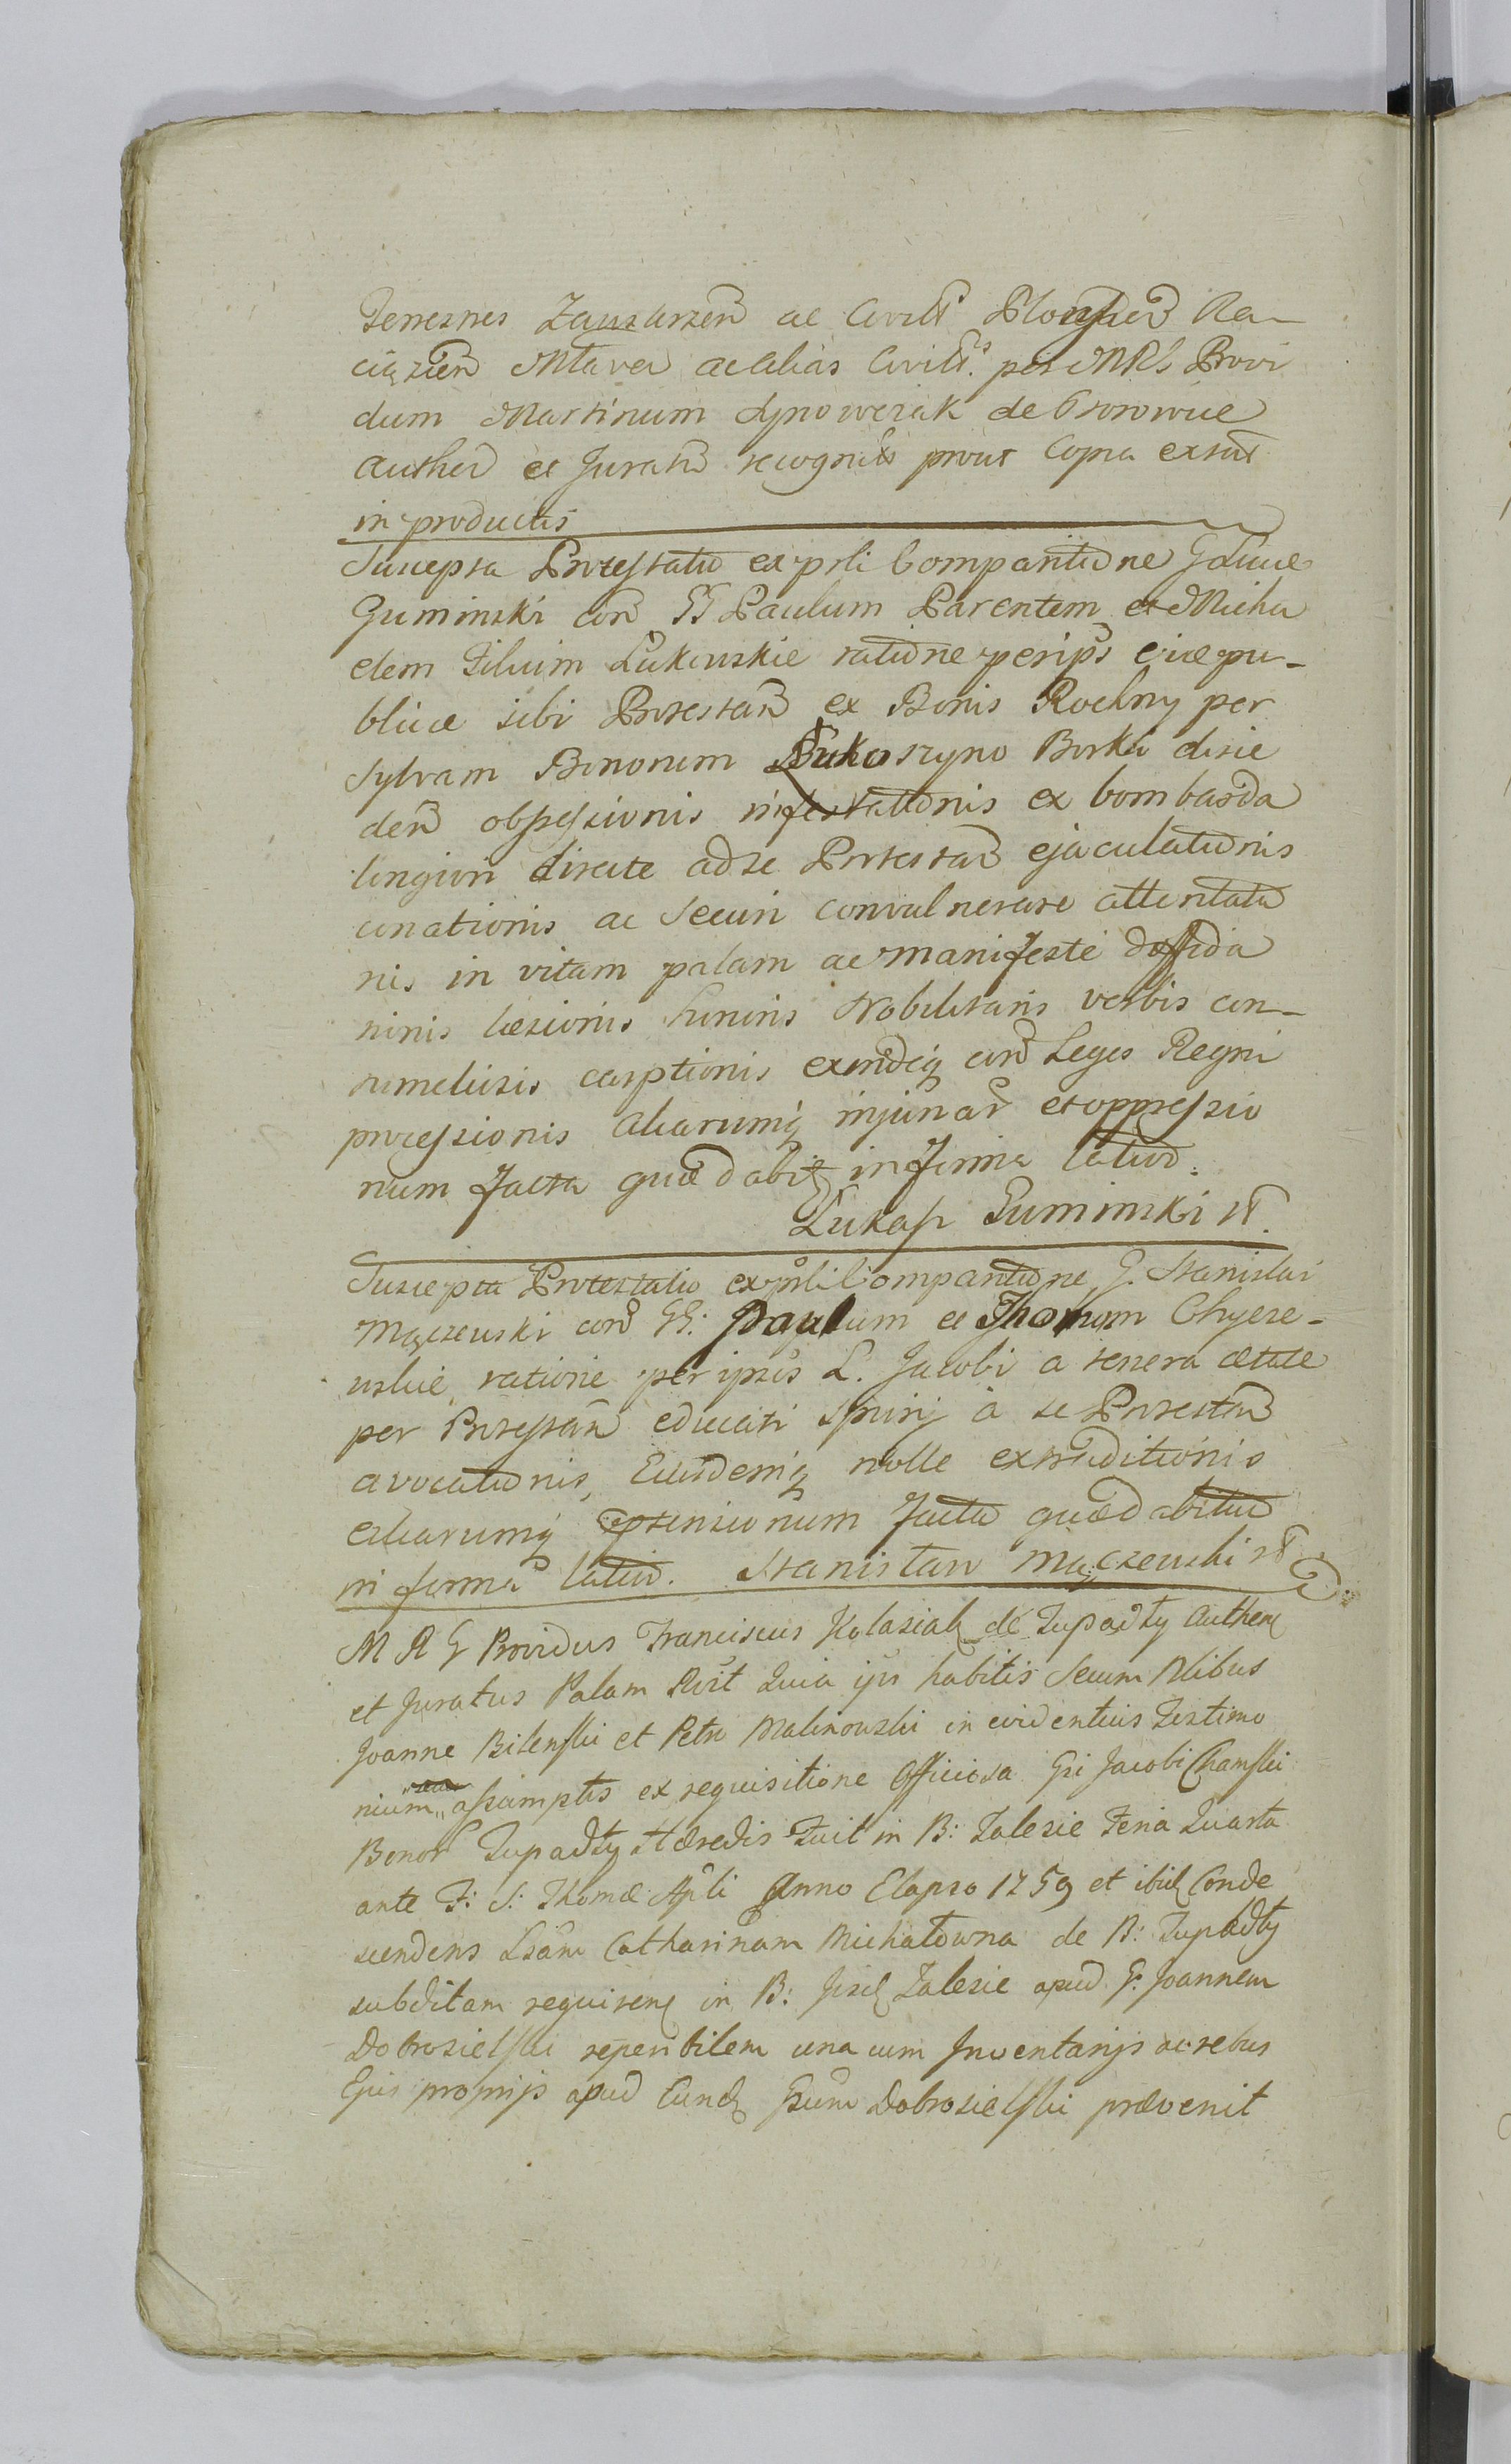 Terrestres Zawskrzen ac Civilt Plonscen Ra-
ciązien Mlaven ac alias Civilt. per MRG Provi
dum Martinum Lynowczak de
authen et Juratu recognit prout Copia extat
in productis
Suscepta Protestatio ex prsli Comparitione G Lucae
Guminski con GG Paulum Parentem et Micha
elem Filium Łukowskie ratione per ips eiae pu-
blicae sibi Protestan ex Bonis Rochny per
Sylvam Bonorum Łukoszyno Borki
den obsessionis infestationis ex bombarda
longiori directe ad se Protestan ejaculationis
conationis ac Securi convulnerare attentatio
nis in vitam palam ac manifeste diffida
tionis laesionis honoris Nobilitaris verbis con-
tumeliosis carptionis exindeq con Leges Regni
processionis aliarumq injuriar et oppressio
num facta quae dabit in forma latiori.
Łukasz Guminski m
Suscepta Protestatio ex prsli Comparitione G. Stanislai
Mączewski con GG: Paulum et Thomam Chycze-
wskie ratione per ipsos L. Jacobi a tenera aetate
per Protestan educati spurij a se Protestan
avocationis, Eiusdemq nolle extraditionis
aliarumq pptensionum facta quae dabitur
in forma latiori. Stanisław Mączewski m
M R G Providus Franciscus Kolasiak de Zupadły Authen
et Juratus Palam Rcit Quia ips habitis secum Nlibus
Joanne Bilenski et Petro Malinowski in evidentius Testimo
nium assumptis ex requisitione Officiosa Gsi Jacobi Chamski
Bonor Zupadły Haeredis Fuit in B: Zalesie Feria Quarta
ante F: S: Thomae Apli Anno Elapso 1759 et ibid Conde
scendens Lsam Catharinam Michałowna de B: Zupadły
subditam requirens in B: Zalesie apud G: Joannem
Dobrosielski reperibilem una cum Inventarijs ac rebus
Ejus proprijs apud Eund Gsum Dobrosielski praevenit